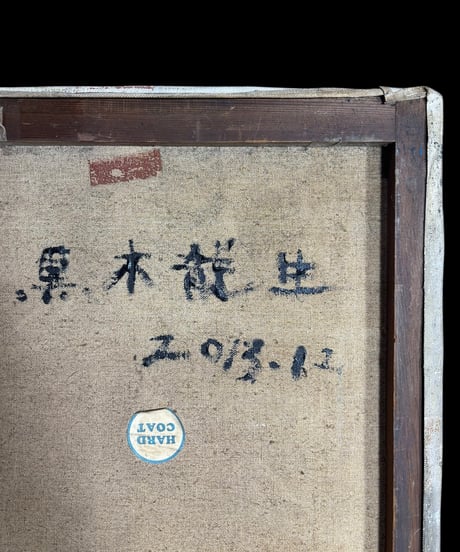 黒木龍生
2013.12
HARD
COAT